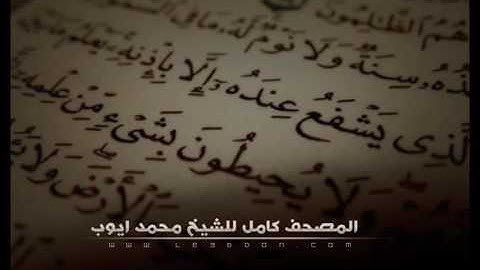 هُمُ الظَّالِمُونَ
سِنَةٌ وَلَا نَوْمٌ لَهُ مَا فِي السَّمَوَ
الَّذِي يَشْفَعُ عِنْدَهُ إِلَّا بِإِذْنِهِ يَعْلَمُ مَا
وَلَا يُحِيطُونَ بِشَيْءٍ مِنْ عِلْمِهِ
الْأَرْضَ وَلَا
المصحف كامل للشيخ محمد ايوب
www.legdoan.com